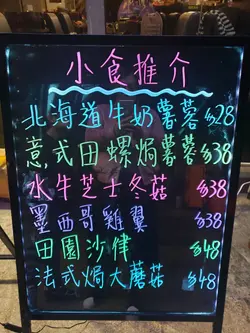 小食推介
北海道牛奶薯蓉 $28
意式田螺焗薯蓉 $38
水牛芝士冬菇 $38
墨西哥雞翼 $38
田園沙律 $48
法式焗大蘑菇 $48